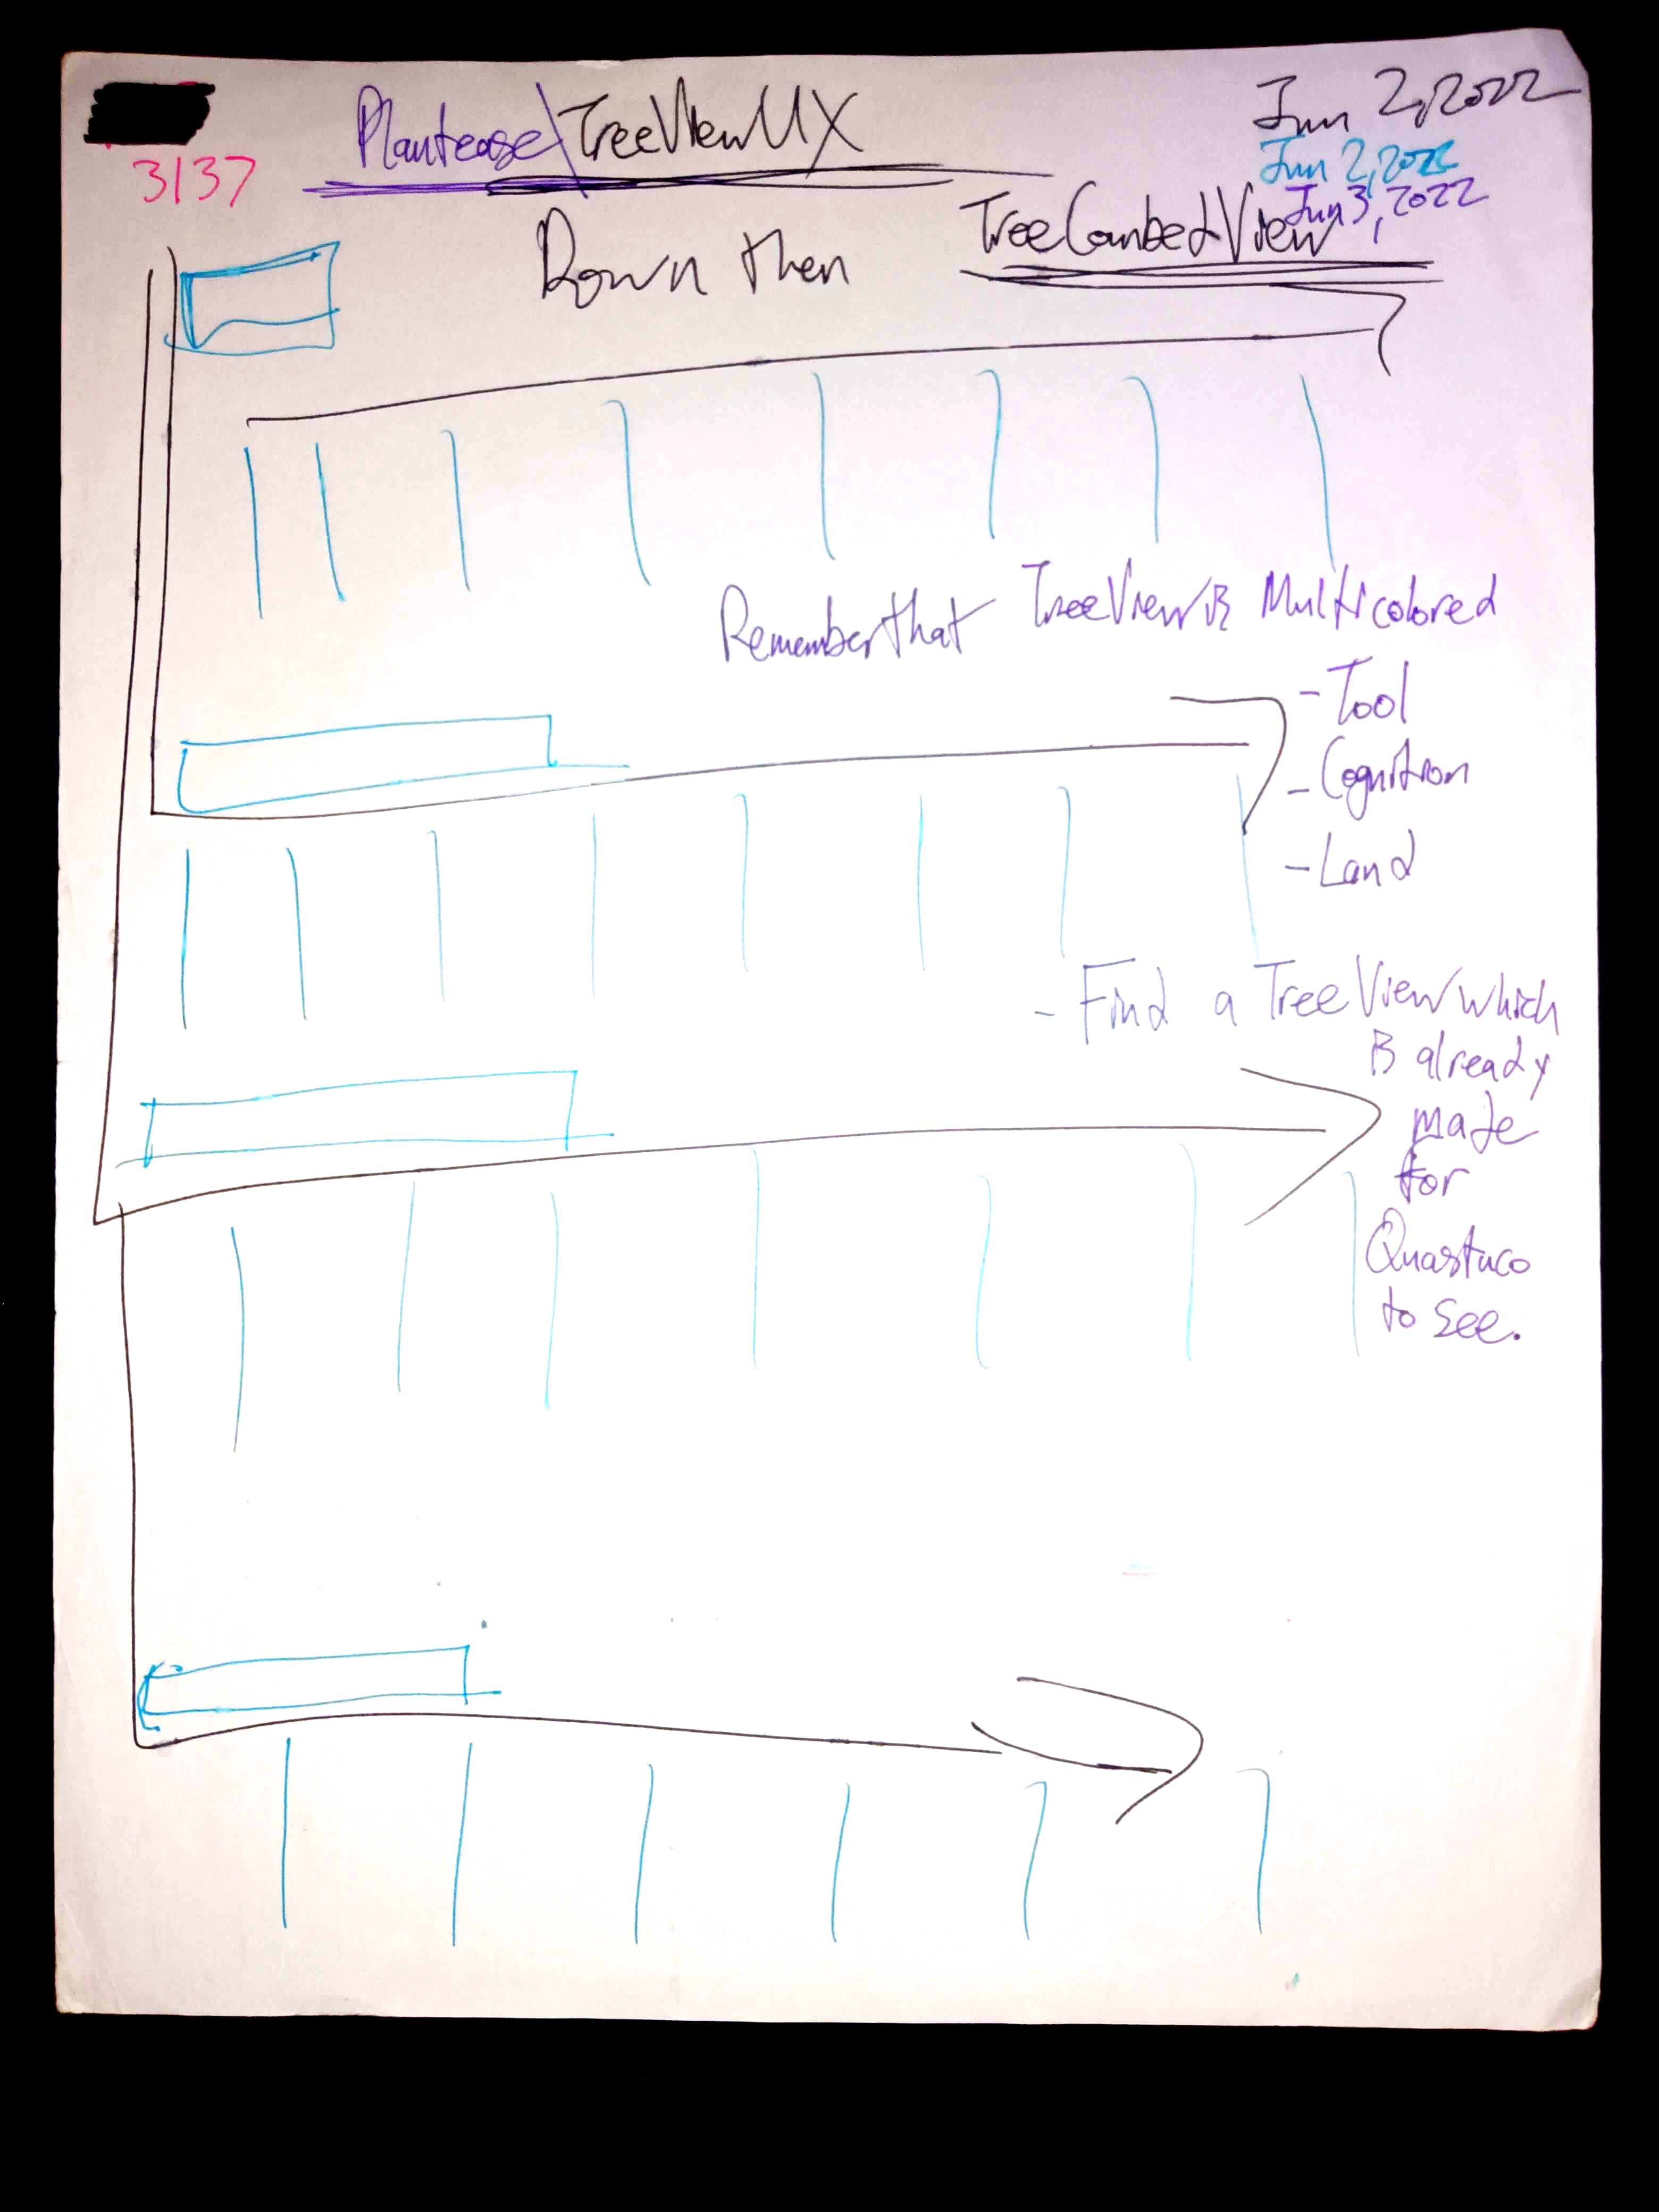 Plantease\TreeViewUX
Jun 2, 2022
Jun 2, 2022
3137
Jun 3, 2022
TreeCombedView
Down then
Remember that TreeView is Multicolored
- Tool
- Cognition
- Land
- Find a TreeView which
is already
made
for
Quastuco
to see.